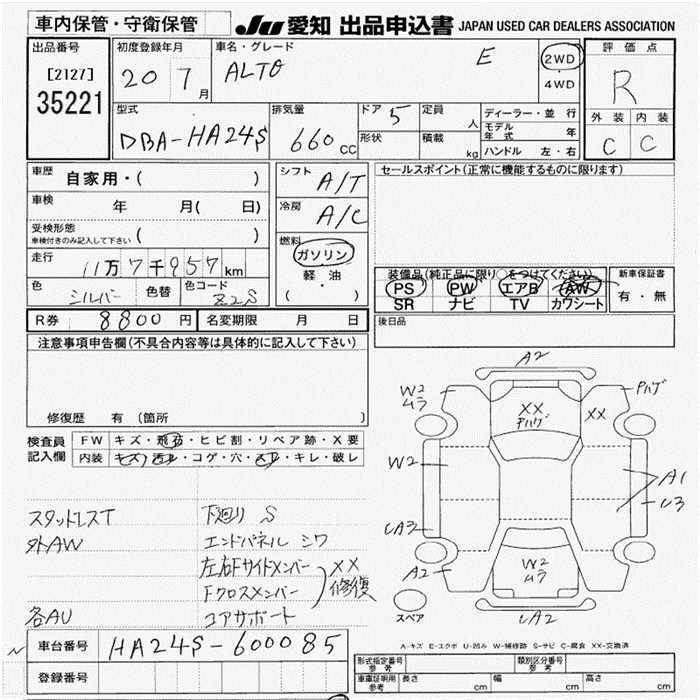 車内保管・守衛保管
JU 愛知 出品申込書 JAPAN USED CAR DEALERS ASSOCIATION
出品番号
[2127]
35221
初度登録年月
20 7月
車名・グレード
ALTO E
2WD
・
4WD
評価点
R
外装 内装
C C
型式
DBA-HA24S
排気量
660cc
ドア 5
形状
定員 人
積載 kg
ディーラー・並行
モデル年式 年
ハンドル 左・右
車歴 自家用・( )
車検 年 月( 日)
受検形態
車検付きのみ記入して下さい ( )
走行 11万7千957km
色 シルバー 色替 色コード Z2S
シフト A/T
冷房 A/C
燃料
ガソリン
・
軽・油
( ・ )
セールスポイント(正常に機能するものに限ります)
装備品(純正品に限り○をつけてください)
PS PW エアB AW
SR ナビ TV カワシート
新車保証書
有・無
R券 8800円 名変期限 月 日
後日品
注意事項申告欄(不具合内容等は具体的に記入して下さい)
修復歴 有 (箇所 )
検査員
記入欄
FW キズ・飛石・ヒビ割・リペア跡・X要
内装 キズ・汚れ・コゲ・穴・スレ・キレ・破レ
スタットレスT
外AW
各AU
下廻り S
エンドパネル シワ
左右Fサイドメンバー
Fクロスメンバー
XX
修復
コアサポート
A2
W2
ムラ
XX
Pハゲ
XX
Pハゲ
W2
A1
U3
UA3
A2
W2
ムラ
A2
スペア
UA2
A-キズ E-エクボ U-凹み W-補修跡 S-サビ C-腐食 XX-交換済
車台番号 HA24S-600085
登録番号
型式指定番号
参考
類別区分番号
参考
車庫証明用
参考
長さ cm 幅 cm 高さ cm